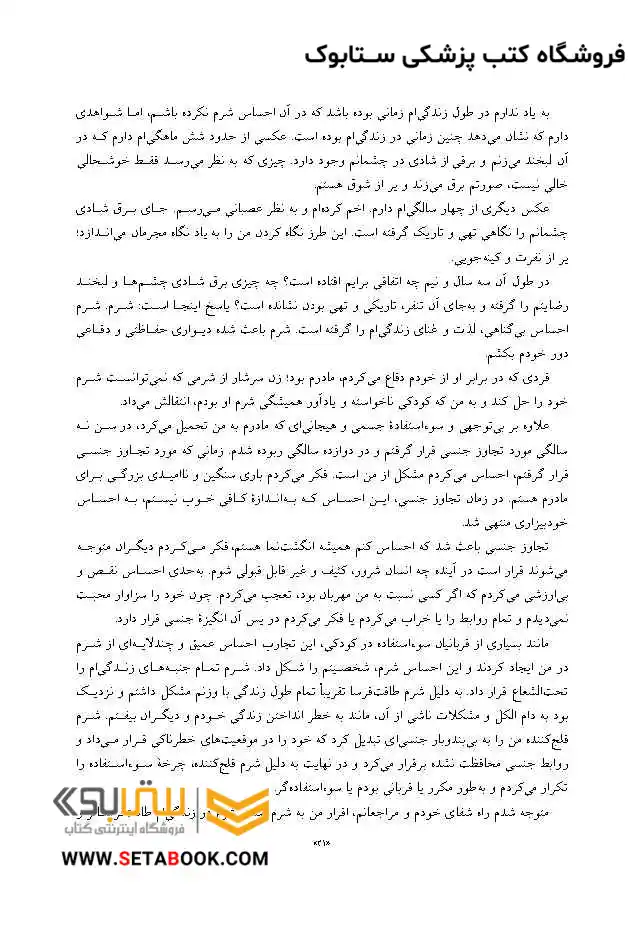 فروشگاه کتب پزشکی ستابوک
به یاد ندارم در طول زندگی‌ام زمانی بوده باشد که در آن احساس شرم نکرده باشم، اما شواهدی
دارم که نشان می‌دهد چنین زمانی در زندگی‌ام بوده است. عکسی از حدود شش ماهگی‌ام دارم که در
آن لبخند می‌زنم و برقی از شادی در چشمانم وجود دارد. چیزی که به نظر می‌رسد فقط خوشحالی
خالی نیست، صورتم برق می‌زند و پر از شوق هستم.
عکس دیگری از چهار سالگی‌ام دارم. اخم کرده‌ام و به نظر عصبانی می‌رسم. جای برق شادی
چشمانم را نگاهی تهی و تاریک گرفته است. این طرز نگاه کردن من را به یاد نگاه مجرمان می‌اندازد؛
پر از نفرت و کینه‌جویی.
در طول آن سه سال و نیم چه اتفاقی برایم افتاده است؟ چه چیزی برق شادی چشم‌ها و لبخند
رضایتم را گرفته و به‌جای آن تنفر، تاریکی و تهی بودن نشانده است؟ پاسخ اینجا است: شرم. شرم
احساس بی‌گناهی، لذت و غنای زندگی‌ام را گرفته است. شرم باعث شده دیواری حفاظتی و دفاعی
دور خودم بکشم.
فردی که در برابر او از خودم دفاع می‌کردم، مادرم بود؛ زن سرشار از شرمی که نمی‌توانست شرم
خود را حل کند و به من که کودکی ناخواسته و یادآور همیشگی شرم او بودم، انتقالش می‌داد.
علاوه بر بی‌توجهی و سوءاستفادهٔ جسمی و هیجانی‌ای که مادرم به من تحمیل می‌کرد، در سن نه
سالگی مورد تجاوز جنسی قرار گرفتم و در دوازده سالگی ربوده شدم. زمانی که مورد تجاوز جنسی
قرار گرفتم، احساس می‌کردم مشکل از من است. فکر می‌کردم باری سنگین و ناامیدی بزرگی برای
مادرم هستم. در زمان تجاوز جنسی، این احساس که به‌اندازهٔ کافی خوب نیستم، به احساس
خودبیزاری منتهی شد.
تجاوز جنسی باعث شد که احساس کنم همیشه انگشت‌نما هستم، فکر می‌کردم دیگران متوجه
می‌شوند قرار است در آینده چه انسان شرور، کثیف و غیر قابل قبولی شوم. به‌حدی احساس نقص و
بی‌ارزشی می‌کردم که اگر کسی نسبت به من مهربان بود، تعجب می‌کردم. چون خود را سزاوار محبت
نمی‌دیدم و تمام روابط را یا خراب می‌کردم یا فکر می‌کردم در پس آن انگیزهٔ جنسی قرار دارد.
مانند بسیاری از قربانیان سوءاستفاده در کودکی، این تجارب احساس عمیق و چندلایه‌ای از شرم
در من ایجاد کردند و این احساس شرم، شخصیتم را شکل داد. شرم تمام جنبه‌های زندگی‌ام را
تحت‌الشعاع قرار داد. به دلیل شرم طاقت‌فرسا تقریباً تمام طول زندگی با وزنم مشکل داشتم و نزدیک
بود به دام الکل و مشکلات ناشی از آن، مانند به خطر انداختن زندگی خودم و دیگران بیفتم. شرم
فلج‌کننده من را به بی‌بندوبار جنسی‌ای تبدیل کرد که خود را در موقعیت‌های خطرناکی قرار می‌داد و
روابط جنسی محافظت نشده برقرار می‌کرد و در نهایت به دلیل شرم فلج‌کننده، چرخهٔ سوءاستفاده را
تکرار می‌کردم و به‌طور مکرر یا قربانی بودم یا سوءاستفاده‌گر.
متوجه شدم راه شفای خودم و مراجعانم، اقرار من به شرم در زندگی‌ام
ستابوک
فروشگاه اینترنتی کتاب
«۲۱»
WWW.SETABOOK.COM